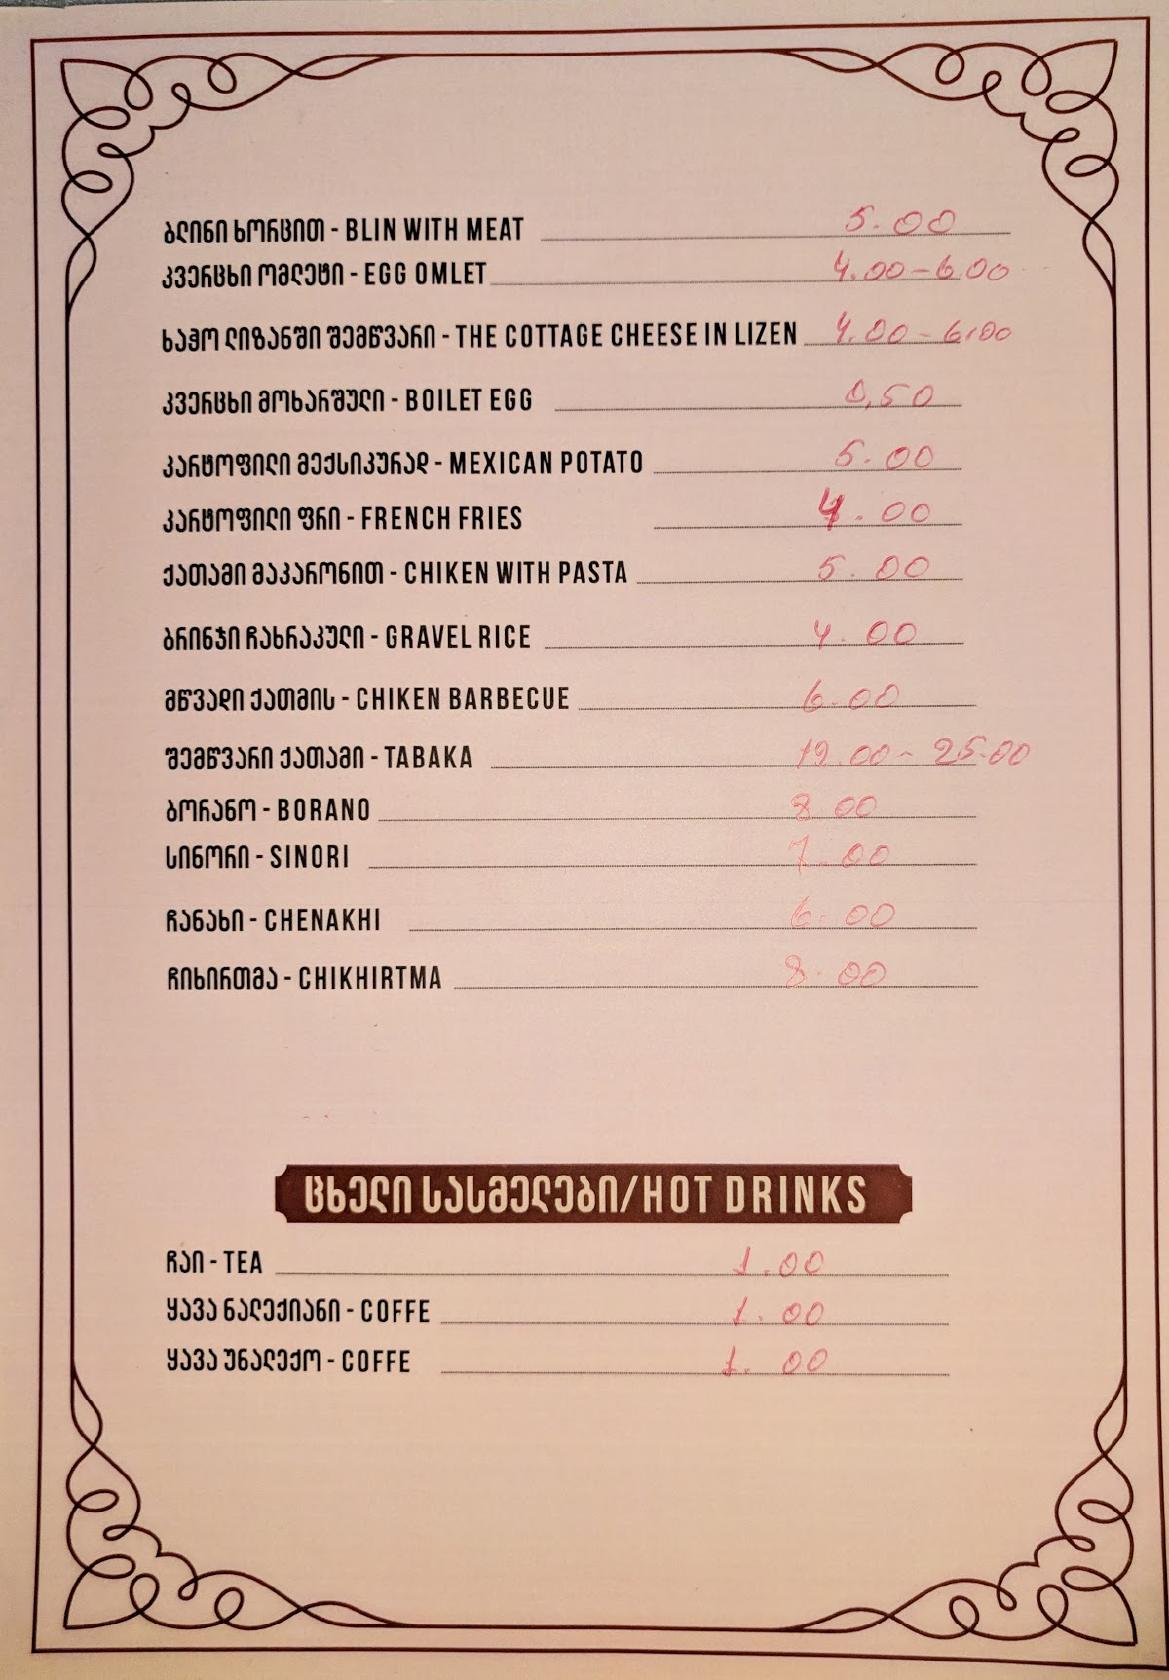 ბლინი ხორცით - BLIN WITH MEAT 5.00
კვერცხი ომლეტი - EGG OMLET 4.00-6.00
ხაჭო ლიზანში შემწვარი - THE COTTAGE CHEESE IN LIZEN 4.00-6.00
კვერცხი მოხარშული - BOILET EGG 0,50
კარტოფილი მექსიკურად - MEXICAN POTATO 5.00
კარტოფილი ფრი - FRENCH FRIES 4.00
ქათამი მაკარონით - CHIKEN WITH PASTA 5.00
ბრინჯი ჩახრაკული - GRAVEL RICE 4.00
მწვადი ქათმის - CHIKEN BARBECUE 6.00
შემწვარი ქათამი - TABAKA 25.00
ბორანო - BORANO 8.00
სინორი - SINORI 7.00
ჩანახი - CHENAKHI 6.00
ჩიხირთმა - CHIKHIRTMA 8.00
ცხელი სასმელები/HOT DRINKS
ჩაი - TEA 1.00
ყავა ნალექიანი - COFFE 1.00
ყავა უნალექო - COFFE 1.00